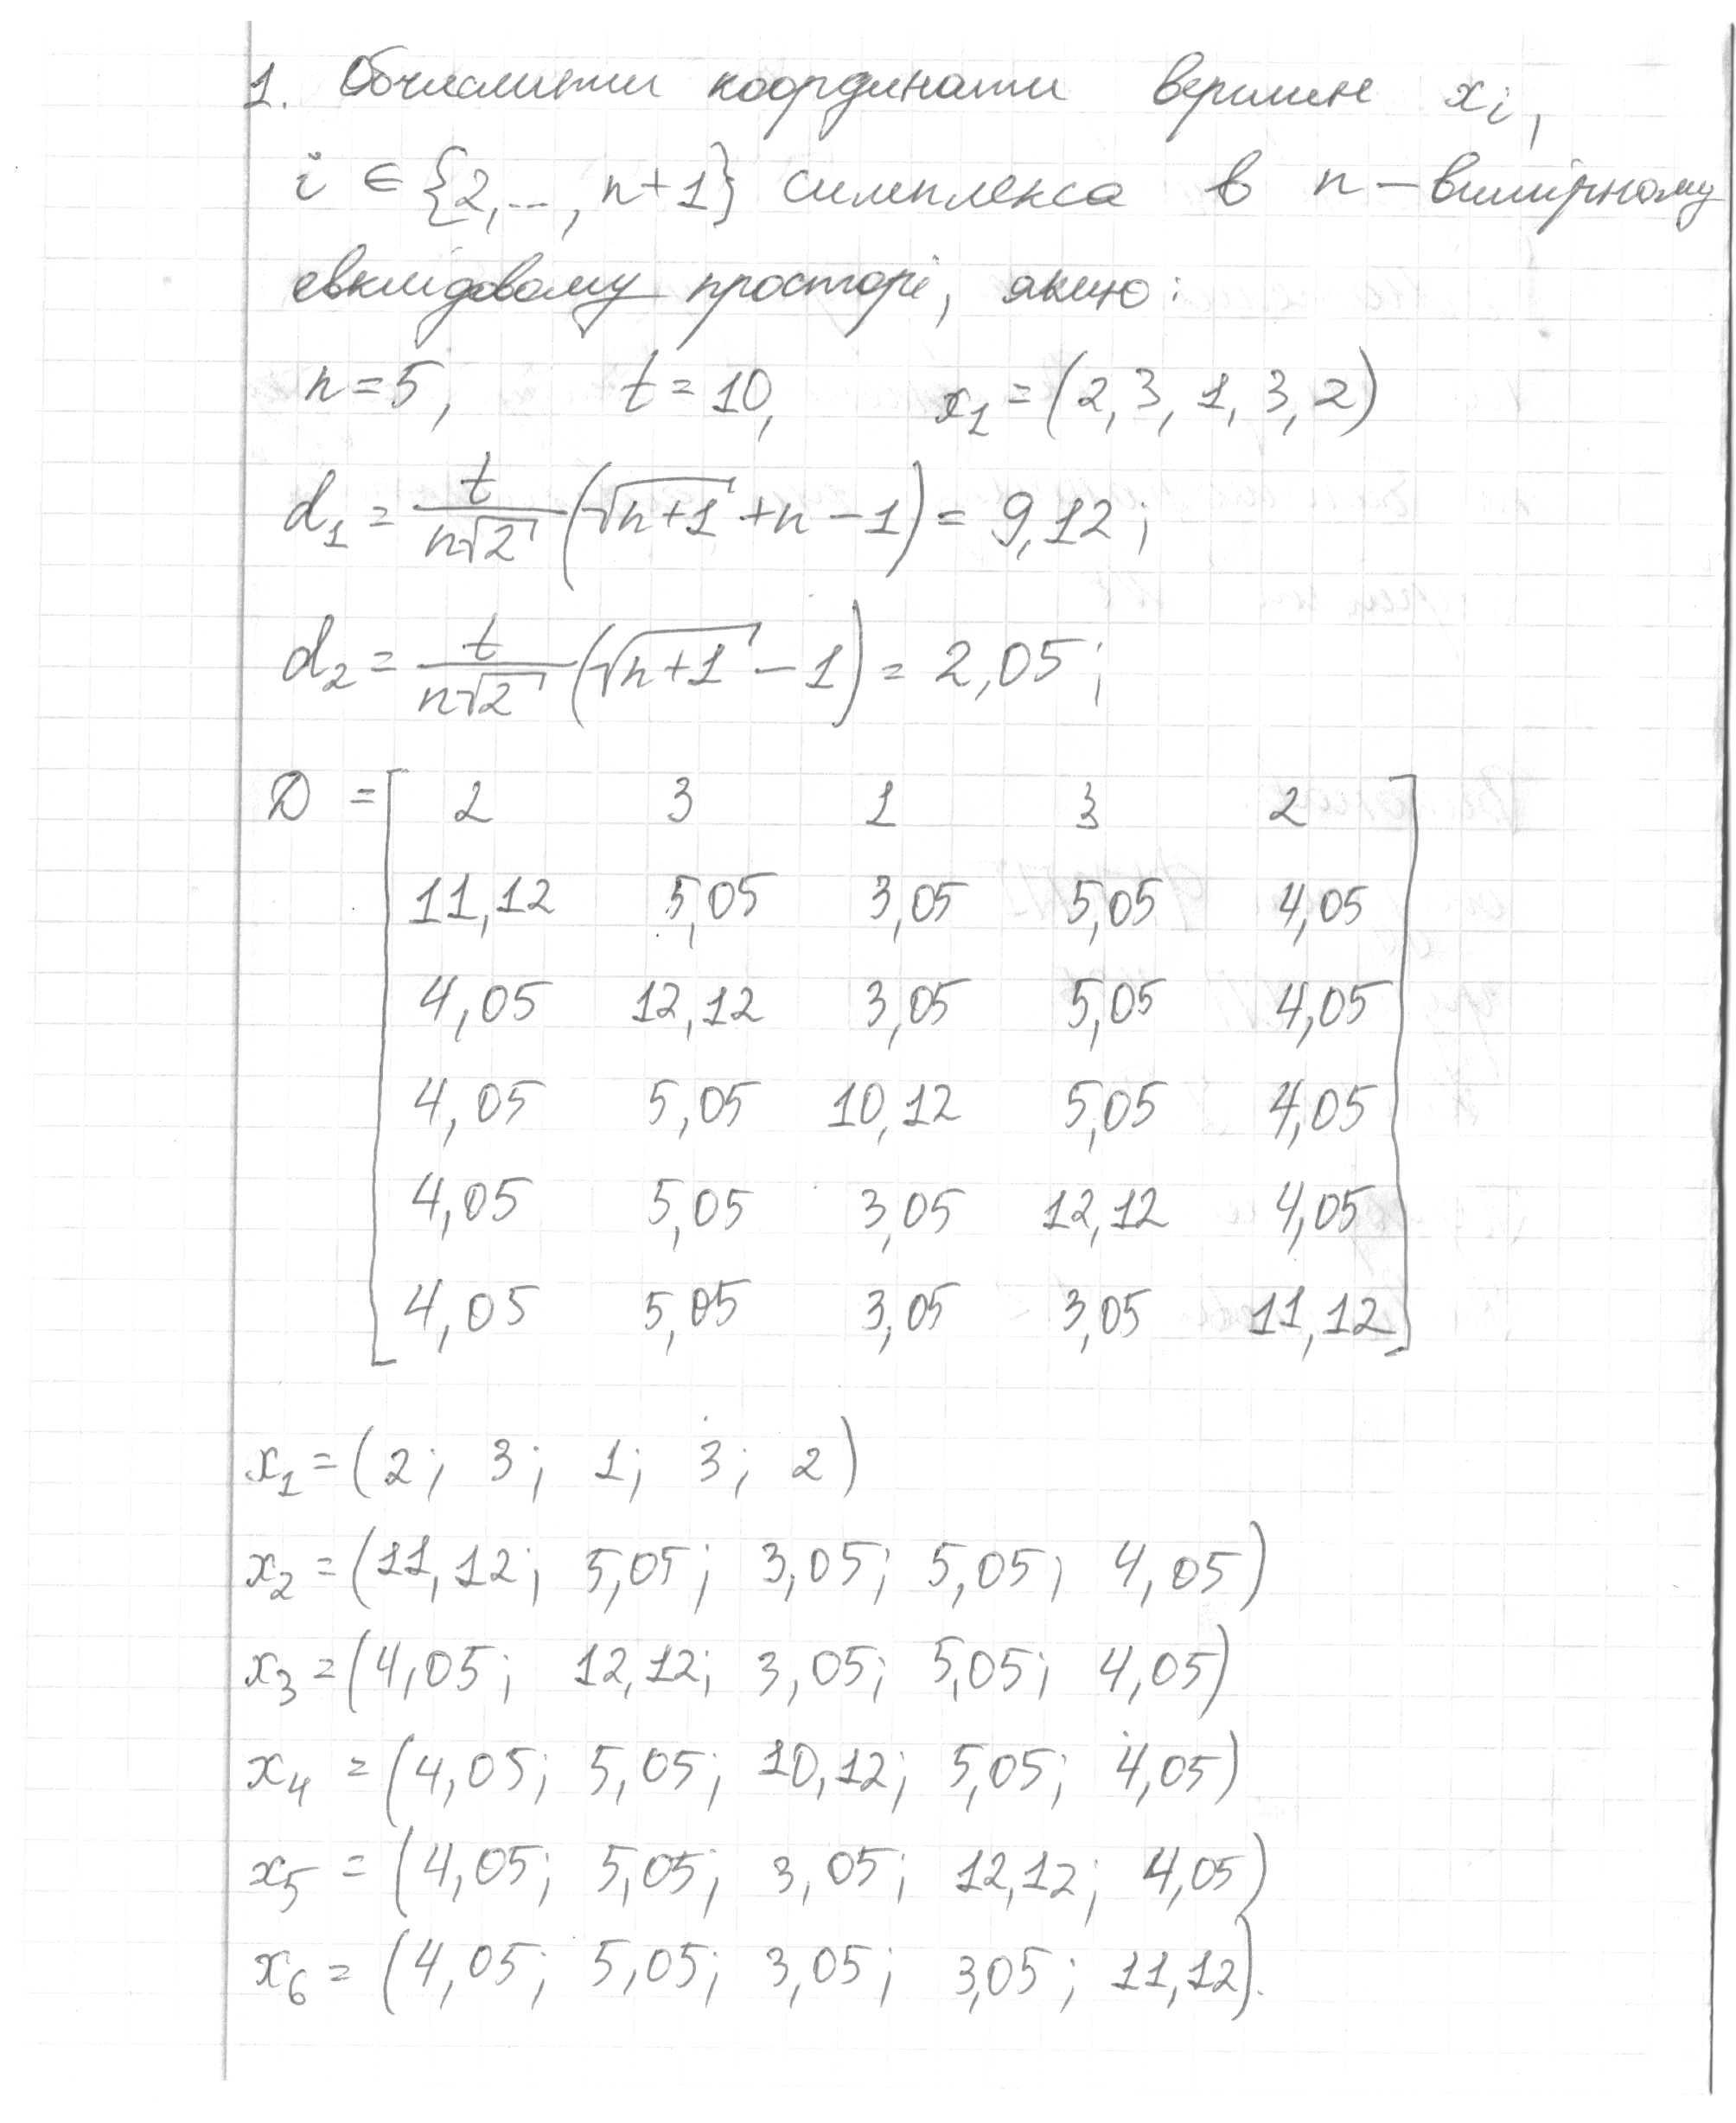 1. Обчислити координати вершин x_i,
i ∈ {2,..., n+1} симплекса в n-вимірному
евклідовому просторі, якщо:
n=5, t=10, x_1=(2, 3, 1, 3, 2)
d_1 = t/(n√2) (√(n+1) + n - 1) = 9,12;
d_2 = t/(n√2) (√(n+1) - 1) = 2,05;
D = [ 2 3 1 3 2
11,12 5,05 3,05 5,05 4,05
4,05 12,12 3,05 5,05 4,05
4,05 5,05 10,12 5,05 4,05
4,05 5,05 3,05 12,12 4,05
4,05 5,05 3,05 3,05 11,12 ]
x_1 = (2; 3; 1; 3; 2)
x_2 = (11,12; 5,05; 3,05; 5,05; 4,05)
x_3 = (4,05; 12,12; 3,05; 5,05; 4,05)
x_4 = (4,05; 5,05; 10,12; 5,05; 4,05)
x_5 = (4,05; 5,05; 3,05; 12,12; 4,05)
x_6 = (4,05; 5,05; 3,05; 3,05; 11,12).